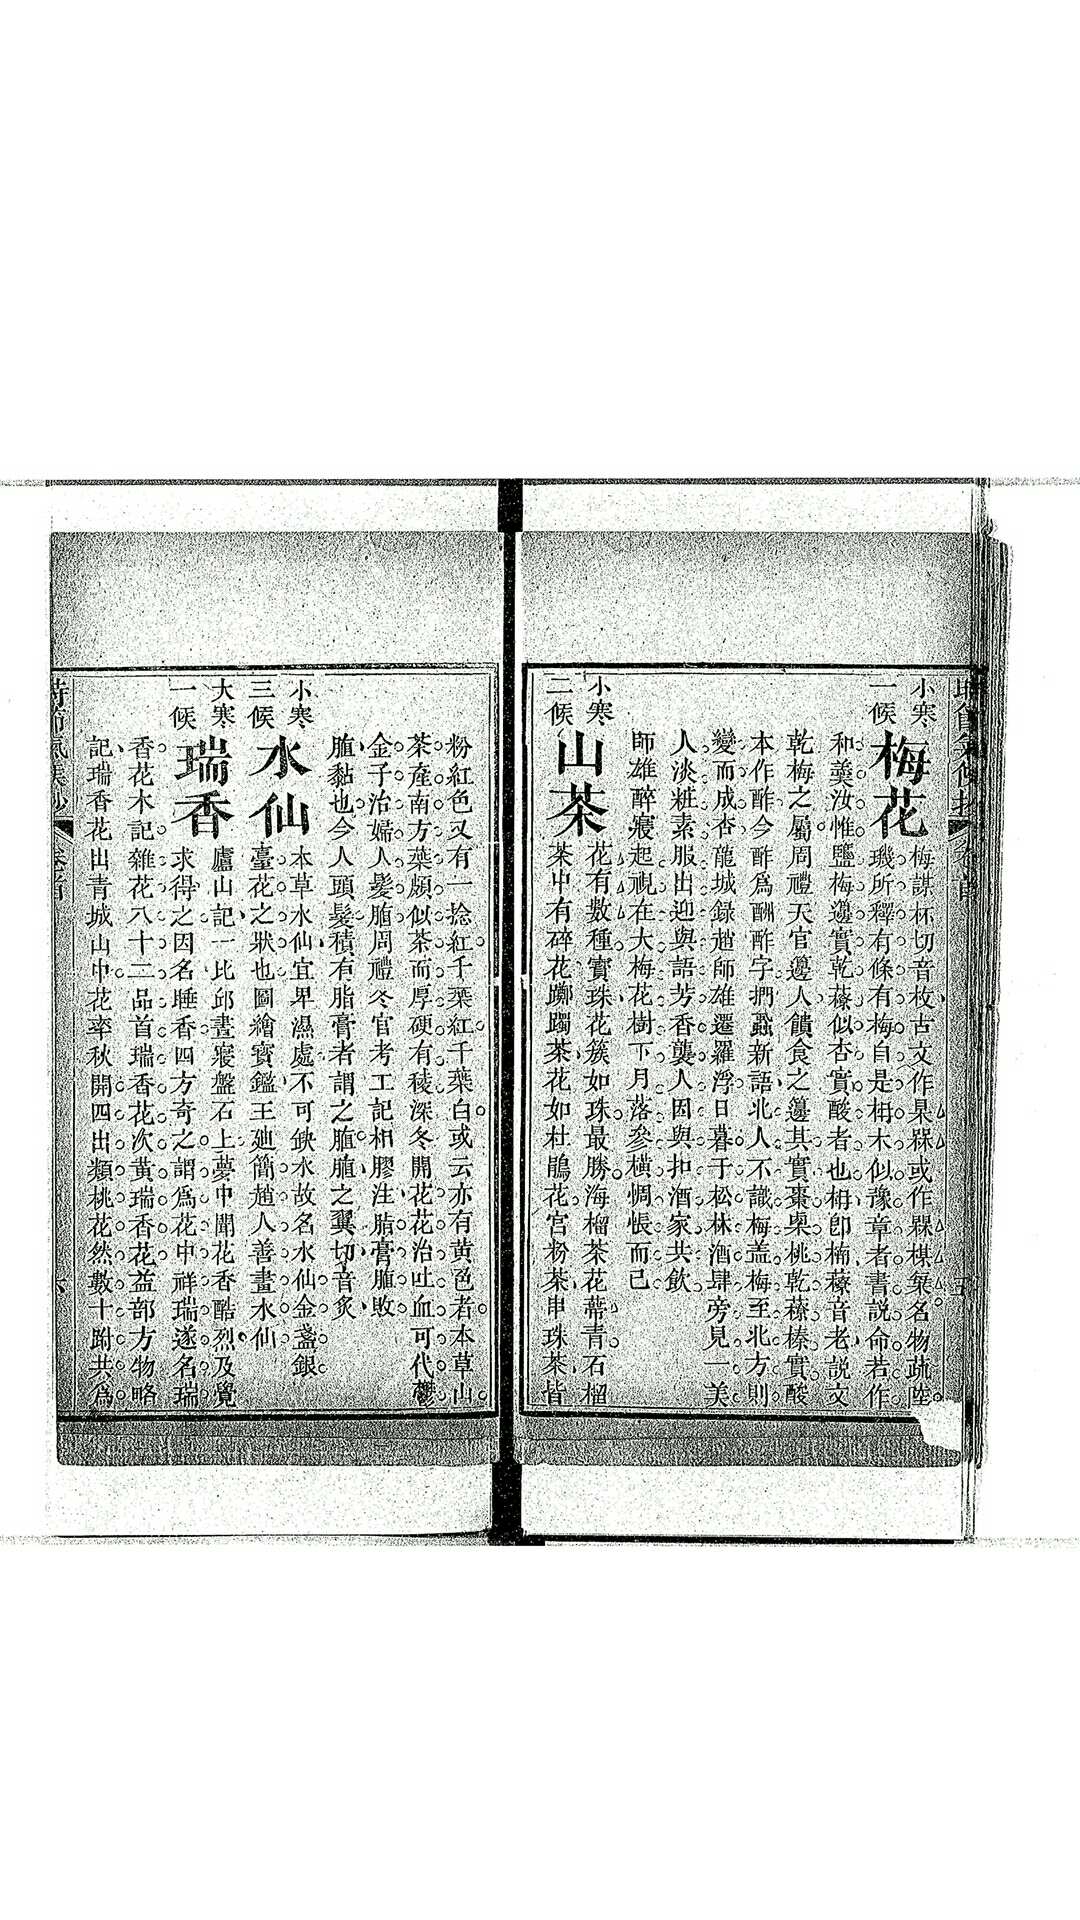 小寒
一候
梅花
梅謀杯切音枚古文作槑或作楳名物疏
璣所釋有條有梅自是柟木似豫章者書説命若作
和羹汝惟鹽梅籩實乾䕩似杏實酸者也柟卽楠䕩音老説文
乾梅之屬周禮天官籩人饋食之籩其實棗㮚桃乾䕩榛實酸
本作酢今酢爲酬酢字捫蝨新語北人不識梅盖梅至北方則
變而成杏龍城録趙師雄遷羅浮日暮于松林酒肆旁見一美
人淡粧素服出迎與語芳香襲人因與扣酒家共飲
師雄醉寢起視在大梅花樹下月落參橫惆悵而已
小寒
二候
山茶
花有數種寶珠花簇如珠最勝海榴茶花蔕青石榴
茶中有碎花躑躅茶花如杜鵑花宮粉茶串珠茶皆
粉紅色又有一捻紅千葉紅千葉白或云亦有黄色者本草山
茶產南方葉頗似茶而厚硬有稜深冬開花花治吐血可代鬱
金子治婦人髮䐈周禮冬官考工記相膠注脂膏䐈敗
䐈黏也今人頭髮積有脂膏者謂之䐈䐈之翼切音炙
小寒
三候
水仙
本草水仙宜卑濕處不可缺水故名水仙金盞銀
臺花之狀也圖繪寶鑑王廸簡趙人善畫水仙
大寒
一候
瑞香
廬山記一比邱晝寢盤石上夢中聞花香酷烈及覺
求得之因名睡香四方奇之謂爲花中祥瑞遂名瑞
香花木記雜花八十二品首瑞香花次黄瑞香花益部方物略
記瑞香花出青城山中花率秋開四出類桃花然數十跗共爲
時節氣候抄
卷首
六